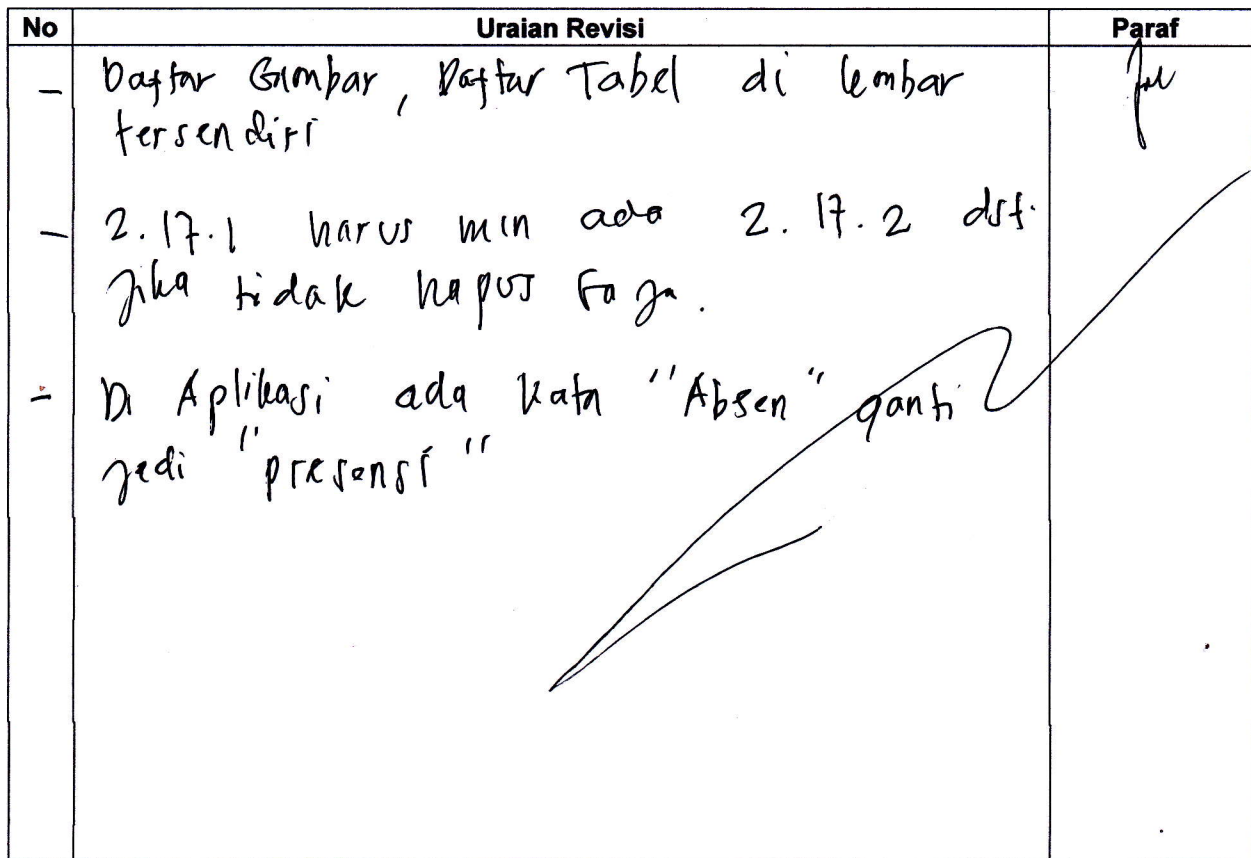 No Uraian Revisi Paraf
- Daftar Gambar, Daftar Tabel di lembar
tersendiri
- 2.17.1 harus min ada 2.17.2 dst.
Jika tidak hapus saja.
- Di Aplikasi ada kata "Absen" ganti
jadi "presensi"